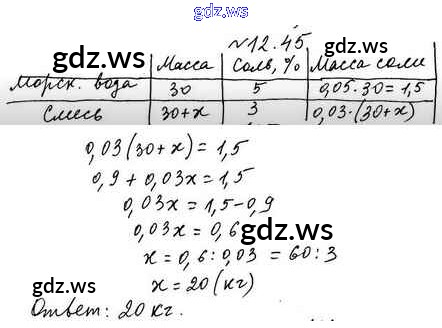 gdz.ws
gdz.ws
№12.45.
gdz.ws
Масса Соль, % Масса соли
Морск. вода 30 5 0,05·30=1,5
Смесь 30+x 3 0,03·(30+x)
0,03(30+x)=1,5
0,9+0,03x=1,5
0,03x=1,5-0,9
0,03x=0,6
gdz.ws
x=0,6:0,03=60:3
gdz.ws
x=20(кг)
Ответ: 20кг.
gdz.ws